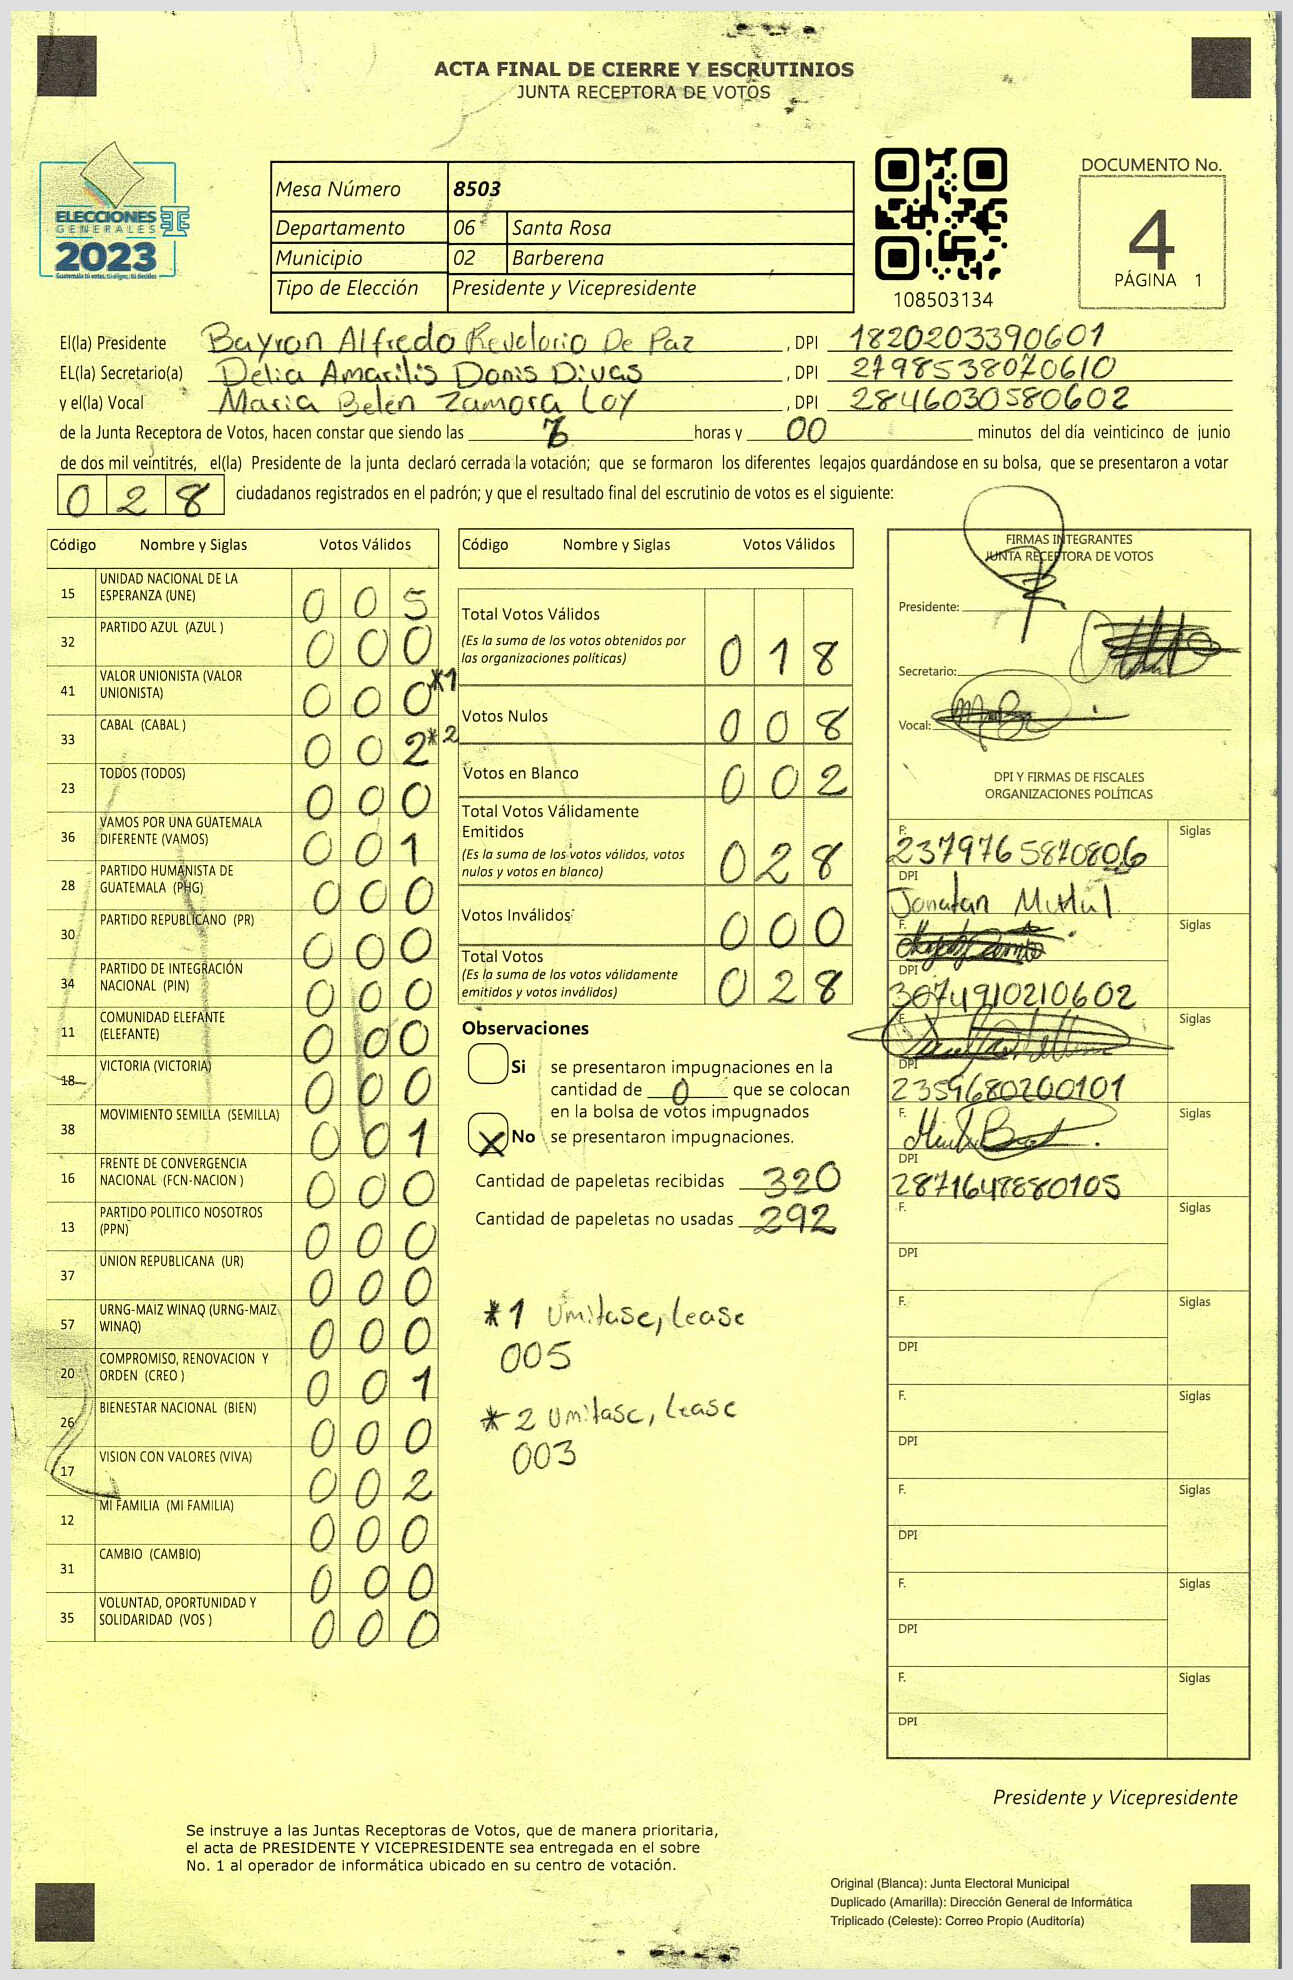 ACTA FINAL DE CIERRE Y ESCRUTINIOS
JUNTA RECEPTORA DE VOTOS
ELECCIONES
GENERALES
2023
Mesa Número 8503
Departamento 06 Santa Rosa
Municipio 02 Barberena
Tipo de Elección Presidente y Vicepresidente
108503134
DOCUMENTO No.
4
PÁGINA 1
El(la) Presidente Bayron Alfredo Revolorio De Paz, DPI 1820203390601
EL(la) Secretario(a) Delia Amarilis Donis Divas, DPI 2798538070610
y el(la) Vocal Maria Belen Zamora Loy, DPI 2846030580602
de la Junta Receptora de Votos, hacen constar que siendo las horas y 00 minutos del día veinticinco de junio
de dos mil veintitrés, el(la) Presidente de la junta declaró cerrada la votación; que se formaron los diferentes legajos guardándose en su bolsa, que se presentaron a votar
028 ciudadanos registrados en el padrón; y que el resultado final del escrutinio de votos es el siguiente:
Código Nombre y Siglas Votos Válidos
15 UNIDAD NACIONAL DE LA ESPERANZA (UNE) 0 0 5
32 PARTIDO AZUL (AZUL ) 0 0 0
41 VALOR UNIONISTA (VALOR UNIONISTA) 0 0 0 *1
33 CABAL (CABAL ) 0 0 2 *2
23 TODOS (TODOS) 0 0 0
36 VAMOS POR UNA GUATEMALA DIFERENTE (VAMOS) 0 0 1
28 PARTIDO HUMANISTA DE GUATEMALA (PHG) 0 0 0
30 PARTIDO REPUBLICANO (PR) 0 0 0
34 PARTIDO DE INTEGRACIÓN NACIONAL (PIN) 0 0 0
11 COMUNIDAD ELEFANTE (ELEFANTE) 0 0 0
18 VICTORIA (VICTORIA) 0 0 0
38 MOVIMIENTO SEMILLA (SEMILLA) 0 0 1
16 FRENTE DE CONVERGENCIA NACIONAL (FCN-NACION ) 0 0 0
13 PARTIDO POLITICO NOSOTROS (PPN) 0 0 0
37 UNION REPUBLICANA (UR) 0 0 0
57 URNG-MAIZ WINAQ (URNG-MAIZ WINAQ) 0 0 0
20 COMPROMISO, RENOVACION Y ORDEN (CREO ) 0 0 1
26 BIENESTAR NACIONAL (BIEN) 0 0 0
17 VISION CON VALORES (VIVA) 0 0 2
12 MI FAMILIA (MI FAMILIA) 0 0 0
31 CAMBIO (CAMBIO) 0 0 0
35 VOLUNTAD, OPORTUNIDAD Y SOLIDARIDAD (VOS ) 0 0 0
Código Nombre y Siglas Votos Válidos
Total Votos Válidos 0 1 8
(Es la suma de los votos obtenidos por
las organizaciones políticas)
Votos Nulos 0 0 8
Votos en Blanco 0 0 2
Total Votos Válidamente
Emitidos 0 2 8
(Es la suma de los votos válidos, votos
nulos y votos en blanco)
Votos Inválidos 0 0 0
Total Votos 0 2 8
(Es la suma de los votos válidamente
emitidos y votos inválidos)
Observaciones
Si se presentaron impugnaciones en la
cantidad de 0 que se colocan
en la bolsa de votos impugnados
X No se presentaron impugnaciones.
Cantidad de papeletas recibidas 320
Cantidad de papeletas no usadas 292
*1 Umitase, Lease
005
*2 Umitase, Lease
003
FIRMAS INTEGRANTES
JUNTA RECEPTORA DE VOTOS
Presidente:
Secretario:
Vocal:
DPI Y FIRMAS DE FISCALES
ORGANIZACIONES POLÍTICAS
F. 2379765870806 Siglas
DPI Jonatan
F. Siglas
DPI 3074910210602
F. Siglas
DPI 2359680200101
F. Siglas
DPI 2871648880105
F. Siglas
DPI
F. Siglas
DPI
F. Siglas
DPI
F. Siglas
DPI
F. Siglas
DPI
F. Siglas
DPI
Presidente y Vicepresidente
Se instruye a las Juntas Receptoras de Votos, que de manera prioritaria,
el acta de PRESIDENTE Y VICEPRESIDENTE sea entregada en el sobre
No. 1 al operador de informática ubicado en su centro de votación.
Original (Blanca): Junta Electoral Municipal
Duplicado (Amarilla): Dirección General de Informática
Triplicado (Celeste): Correo Propio (Auditoría)